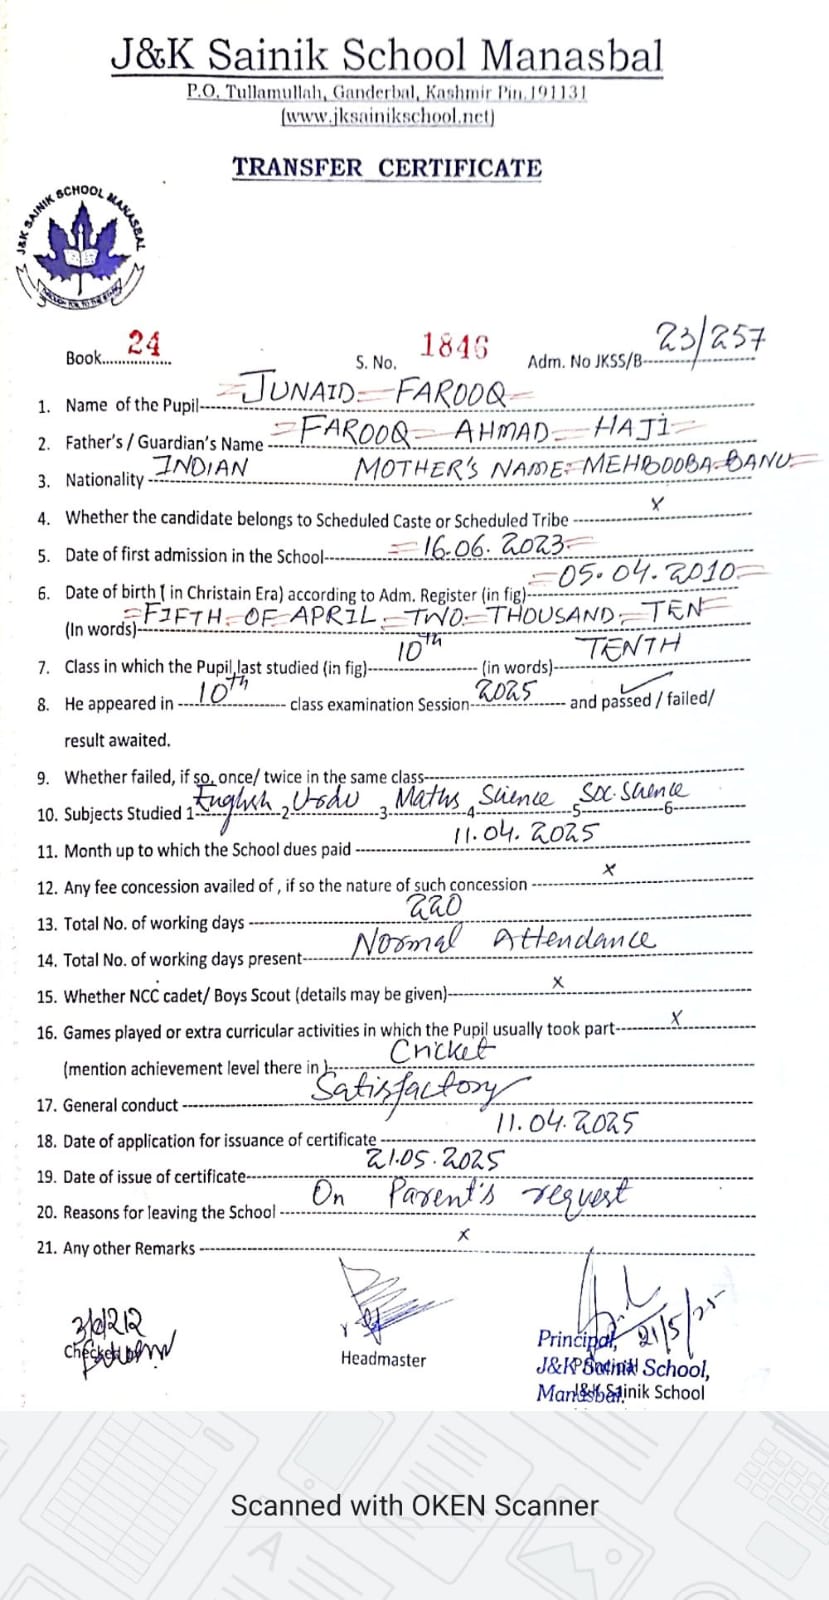 J&K Sainik School Manasbal
P.O. Tullamullah, Ganderbal, Kashmir Pin.191131
(www.jksainikschool.net)
TRANSFER CERTIFICATE
J&K SAINIK SCHOOL MANASBAL
Book 24 S. No. 1846 Adm. No JKSS/B- 23/257
1. Name of the Pupil JUNAID FAROOQ
2. Father's / Guardian's Name FAROOQ AHMAD HAJI
3. Nationality INDIAN MOTHER'S NAME: MEHBOOBA BANU
4. Whether the candidate belongs to Scheduled Caste or Scheduled Tribe x
5. Date of first admission in the School 16.06.2023
6. Date of birth ( in Christain Era) according to Adm. Register (in fig) 05.04.2010
(In words) FIFTH OF APRIL TWO THOUSAND TEN
7. Class in which the Pupil last studied (in fig) 10th (in words) TENTH
8. He appeared in 10th class examination Session 2025 and passed / failed/
result awaited.
9. Whether failed, if so, once/ twice in the same class
10. Subjects Studied 1 English 2 Urdu 3 Maths 4 Science 5 Soc. Science 6
11. Month up to which the School dues paid 11.04.2025
12. Any fee concession availed of , if so the nature of such concession x
13. Total No. of working days 220
14. Total No. of working days present Normal Attendance
15. Whether NCC cadet/ Boys Scout (details may be given) x
16. Games played or extra curricular activities in which the Pupil usually took part x
(mention achievement level there in ) Cricket
17. General conduct Satisfactory
18. Date of application for issuance of certificate 11.04.2025
19. Date of issue of certificate 21.05.2025
20. Reasons for leaving the School On Parent's request
21. Any other Remarks x
Checked
Headmaster
21/5/25
Principal,
J&K Sainik School,
Manasbal.
Principal
J&K Sainik School
Scanned with OKEN Scanner